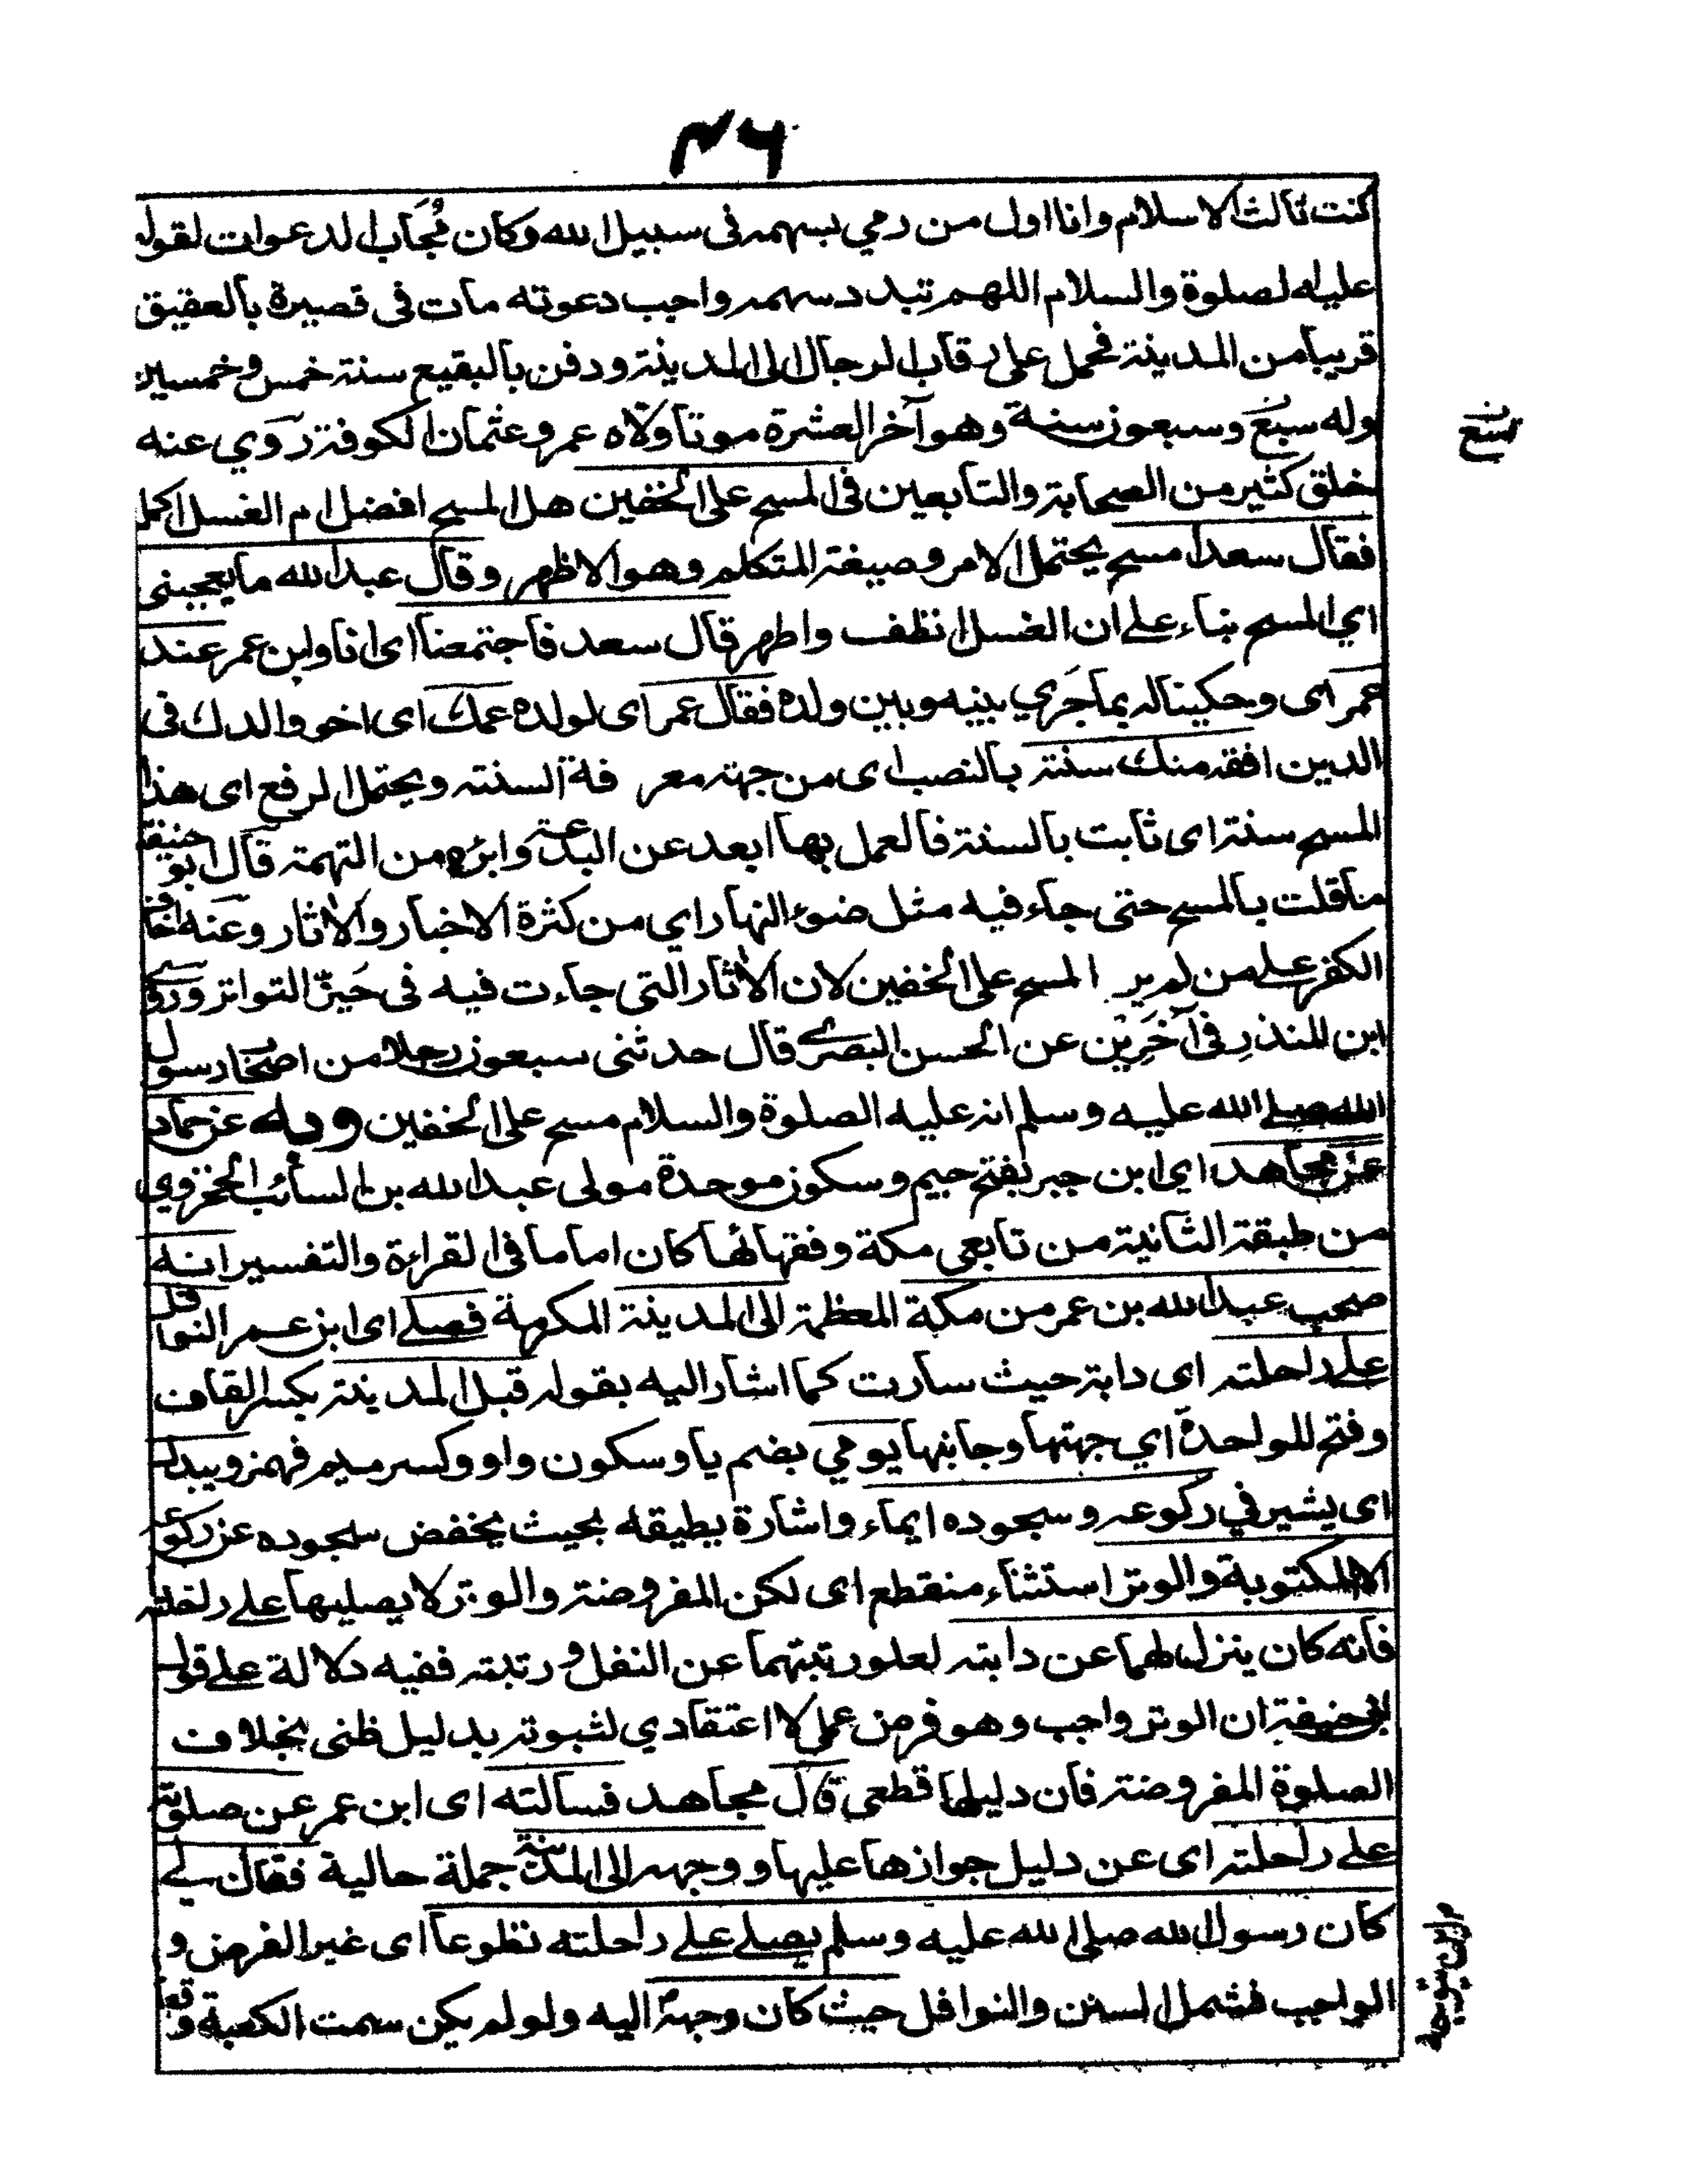 ٤٦
كنت ثالث الاسلام وانا اول من رمي بسهمه فى سبيل الله وكان مُجَاب الدعوات لقوله
عليه الصلوة والسلام اللهم سدد سهمه واجب دعوته مات فى قصيرة بالعقيق
قريبا من المدينة فحمل على رقاب الرجال الى المدينة ودفن بالبقيع سنة خمس وخمسين
وله سبع وسبعون سنة وهو آخر العشرة موتا ولاه عمر وعثمان الكوفة روي عنه
خلق كثير من الصحابة والتابعين فى المسح على الخفين هل المسح افضل ام الغسل اكمل
فقال سعد امسح يحتمل الامر وصيغة المتكلم وهو الاظهر وقال عبد الله ما يعجبنى
اي المسح بناء على ان الغسل انظف واطهر قال سعد فاجتمعنا اى انا وابن عمر عند
عمر اى وحكينا له بما جَري بينه وبين ولده فقال عمر اى لولده عمك اى اخو والدك فى
الدين افقه منك سنة بالنصب اى من جهة معر فة السنة ويحتمل الرفع اى هذا
المسح سنة اى ثابت بالسنة فالعمل بها ابعد عن البدعة وابرء من التهمة قال ابو حنيفة
ما قلت بالمسح حتى جاء فيه مثل ضوء النهار اي من كثرة الاخبار والاثار وعنه اخاف
الكفر على من لم ير المسح على الخفين لان الاثار التى جاءت فيه فى حَيز التواتر وروى
ابن المنذر فى آخَرِين عن الحسن البصرى قال حدثنى سبعون رجلا من اصحاب رسول
الله صلى الله عليه وسلم انه عليه الصلوة والسلام مسح على الخفين وبه عن حماد
عن مجاهد اي ابن جبر بفتح جيم وسكون موحدة مولى عبد الله بن السائب المخزومي
من طبقة الثانية من تابعى مكة وفقهائها كان اماما فى القراءة والتفسير انه
صحب عبد الله بن عمر من مكة المعظمة الى المدينة المكرمة فصلى اى ابن عمر النوافل
على راحلته اى دابة حيث سارت كما اشار اليه بقوله قبل المدينة بكسر القاف
وفتح للواحدة اي جهتها وجانبها يومي بضم يا وسكون واو وكسر ميم فهمز ويبدل
اى يشير في ركوعه وسجوده ايماء واشارة يطيقه بحيث يخفض سجوده عن ركوعه
الا المكتوبة والوتر استثناء منقطع اى لكن المفروضة والوتر لا يصليها على راحلته
فانه كان ينزل لهما عن دابته لعلو رتبتهما عن النفل ورتبته ففيه دلالة على قول
ابى حنيفة ان الوتر واجب وهو فرض عملى لا اعتقادي لثبوته بدليل ظنى بخلاف
الصلوة المفروضة فان دليلها قطعى قال مجاهد فسالته اى ابن عمر عن صلوته
على راحلته اى عن دليل جوازها عليها و وجهه الى المدينة جملة حالية فقال لى
كان رسول الله صلى الله عليه وسلم يصلى على راحلته تطوعا اى غير الفرض و
الواجب فشمل السنن والنوافل حيث كان وجهه اليه ولو لم يكن سمت الكعبة